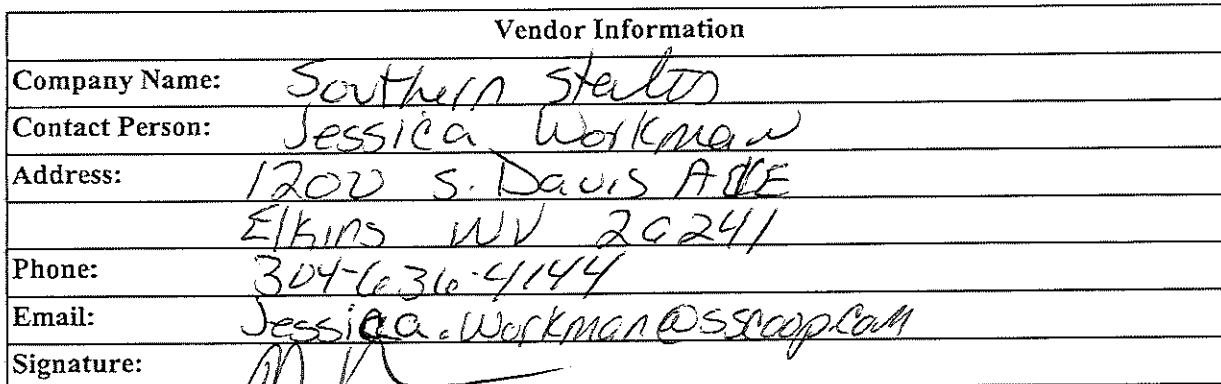 Vendor Information
Company Name: Southern States
Contact Person: Jessica Workman
Address: 1200 S. Davis AVE
Elkins WV 26241
Phone: 304-636-4144
Email: Jessica.Workman@sscoop.com
Signature: